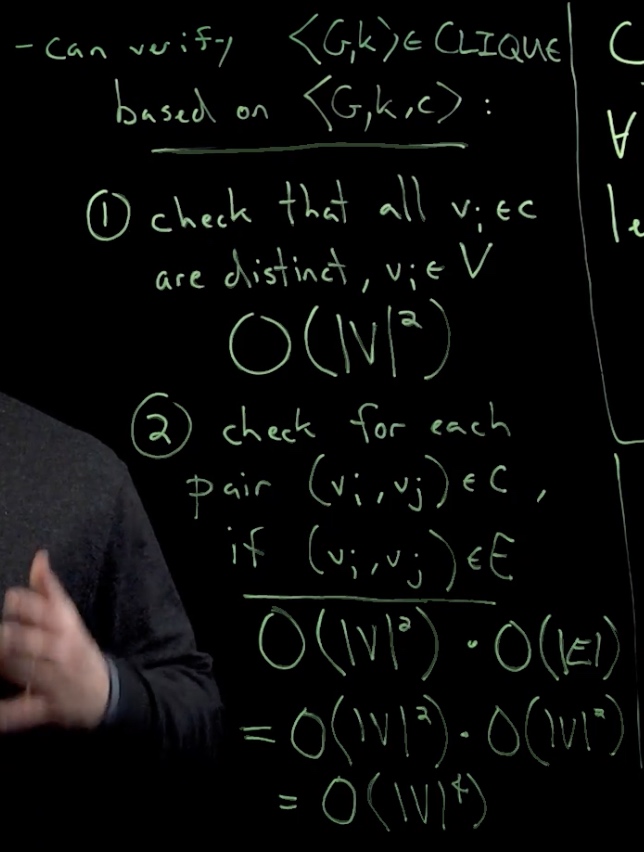 - can verify <G,k> ∈ CLIQUE
based on <G,k,c> :
① check that all vᵢ ∈ c
are distinct, vᵢ ∈ V
O(|V|²)
② check for each
pair (vᵢ, vⱼ) ∈ C,
if (vᵢ, vⱼ) ∈ E
O(|V|²) · O(|E|)
= O(|V|²) · O(|V|²)
= O(|V|⁴)
C
∀
le